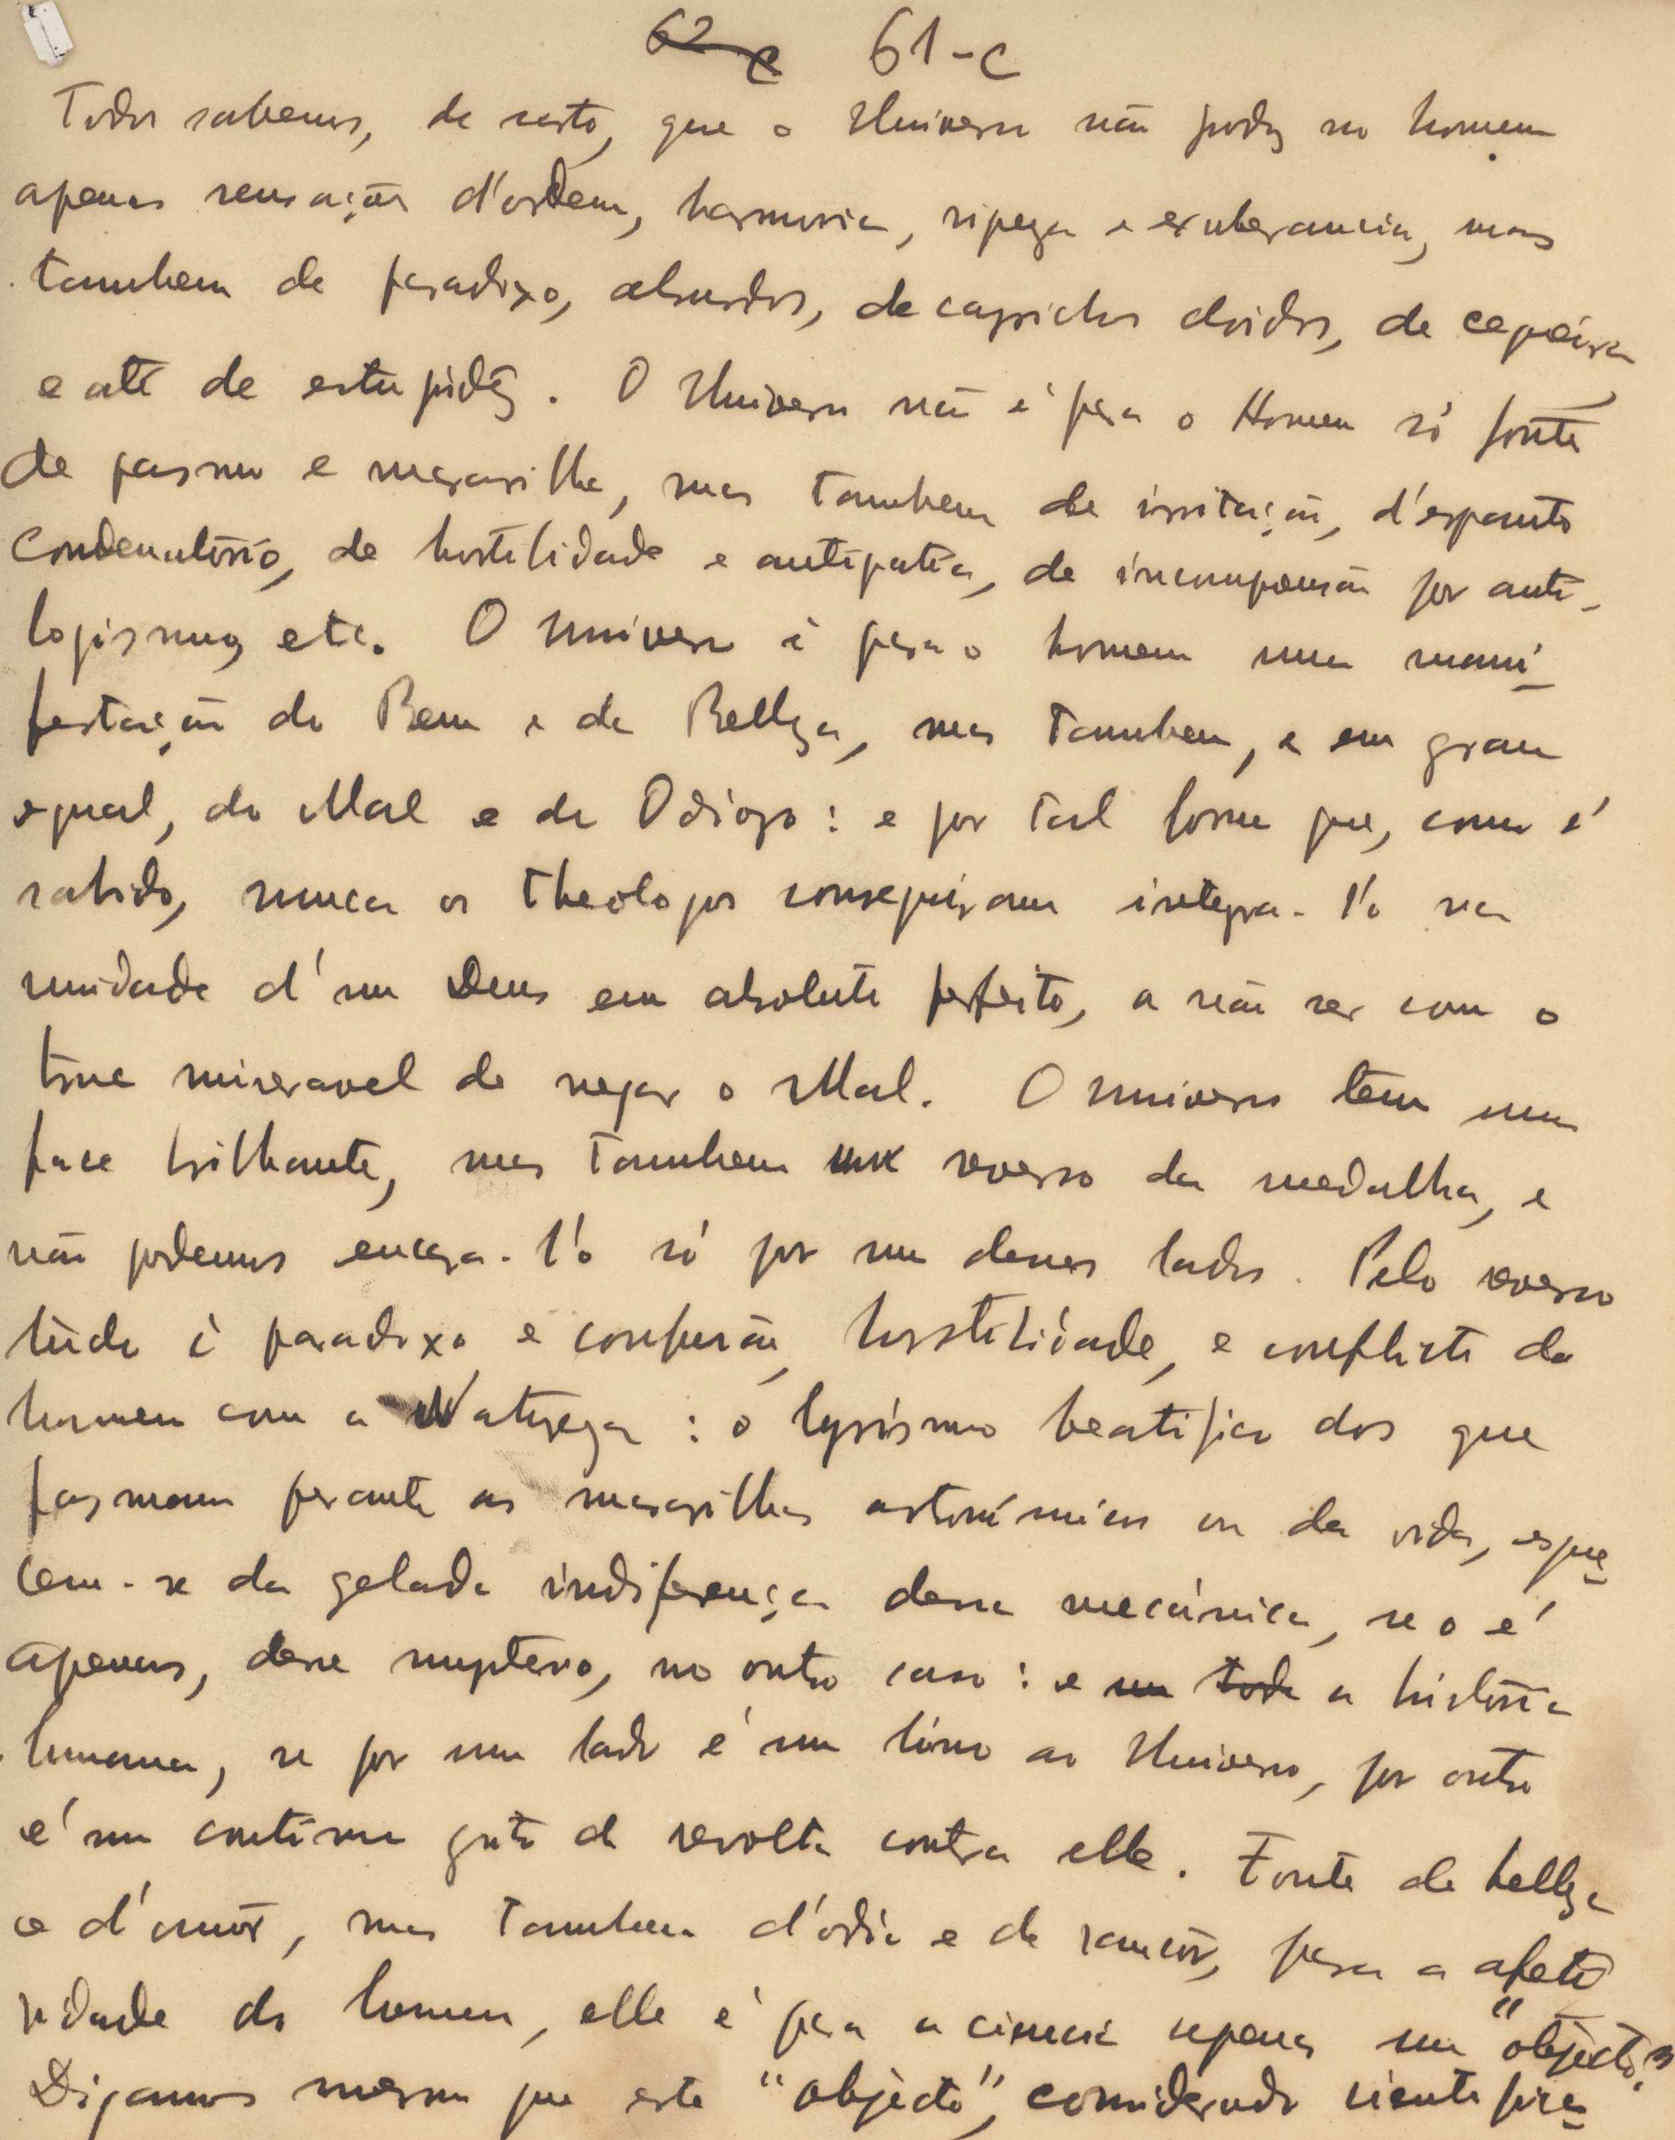 62-c 61-c
Todos sabemos, de resto, que o Universo não produz no homem
apenas sensações d'ordem, harmonia, riqueza e exuberancia, mas
tambem de paradoxo, absurdos, de caprichos doidos, de cegueira
e até de estupidêz. O Universo não é para o Homem só fonte
de pasmo e maravilha, mas tambem de irritação, d'espanto
condenatório, de hostilidade e antipatia, de incompreensão por anti-
logismo, etc. O universo é para o homem uma mani-
festação do Bem e da Belleza, mas tambem, e em grau
egual, do Mal e do Odioso: e por tal forma que, como é
sabido, nunca os theologos conseguiram integra-l'o na
unidade d'um Deus em absoluto perfeito, a não ser com o
truc miseravel de negar o Mal. O universo tem uma
face brilhante, mas tambem um reverso da medalha, e
não podemos encara-l'o só por um desses lados. Pelo reverso
tudo é paradoxo e confusão, hostilidade, e conflicto do
homem com a Natureza: o lyrismo beatifico dos que
pasmam perante as maravilhas astronómicas ou da vida, esque-
cem-se da gelada indiferença dessa mecánica, se o é
apenas, desse mysterio, no outro caso: e um toda a história
humana, se por um lado é um hino ao Universo, por outro
é um continuo grito de revolta contra elle. Fonte de belleza
e d'amôr, mas tambem d'odio e de rancôr, para a afeti
vidade do homem, elle é para a ciencia apenas um "objecto".
Digamos mesmo que este "objecto", considerado scientifica-